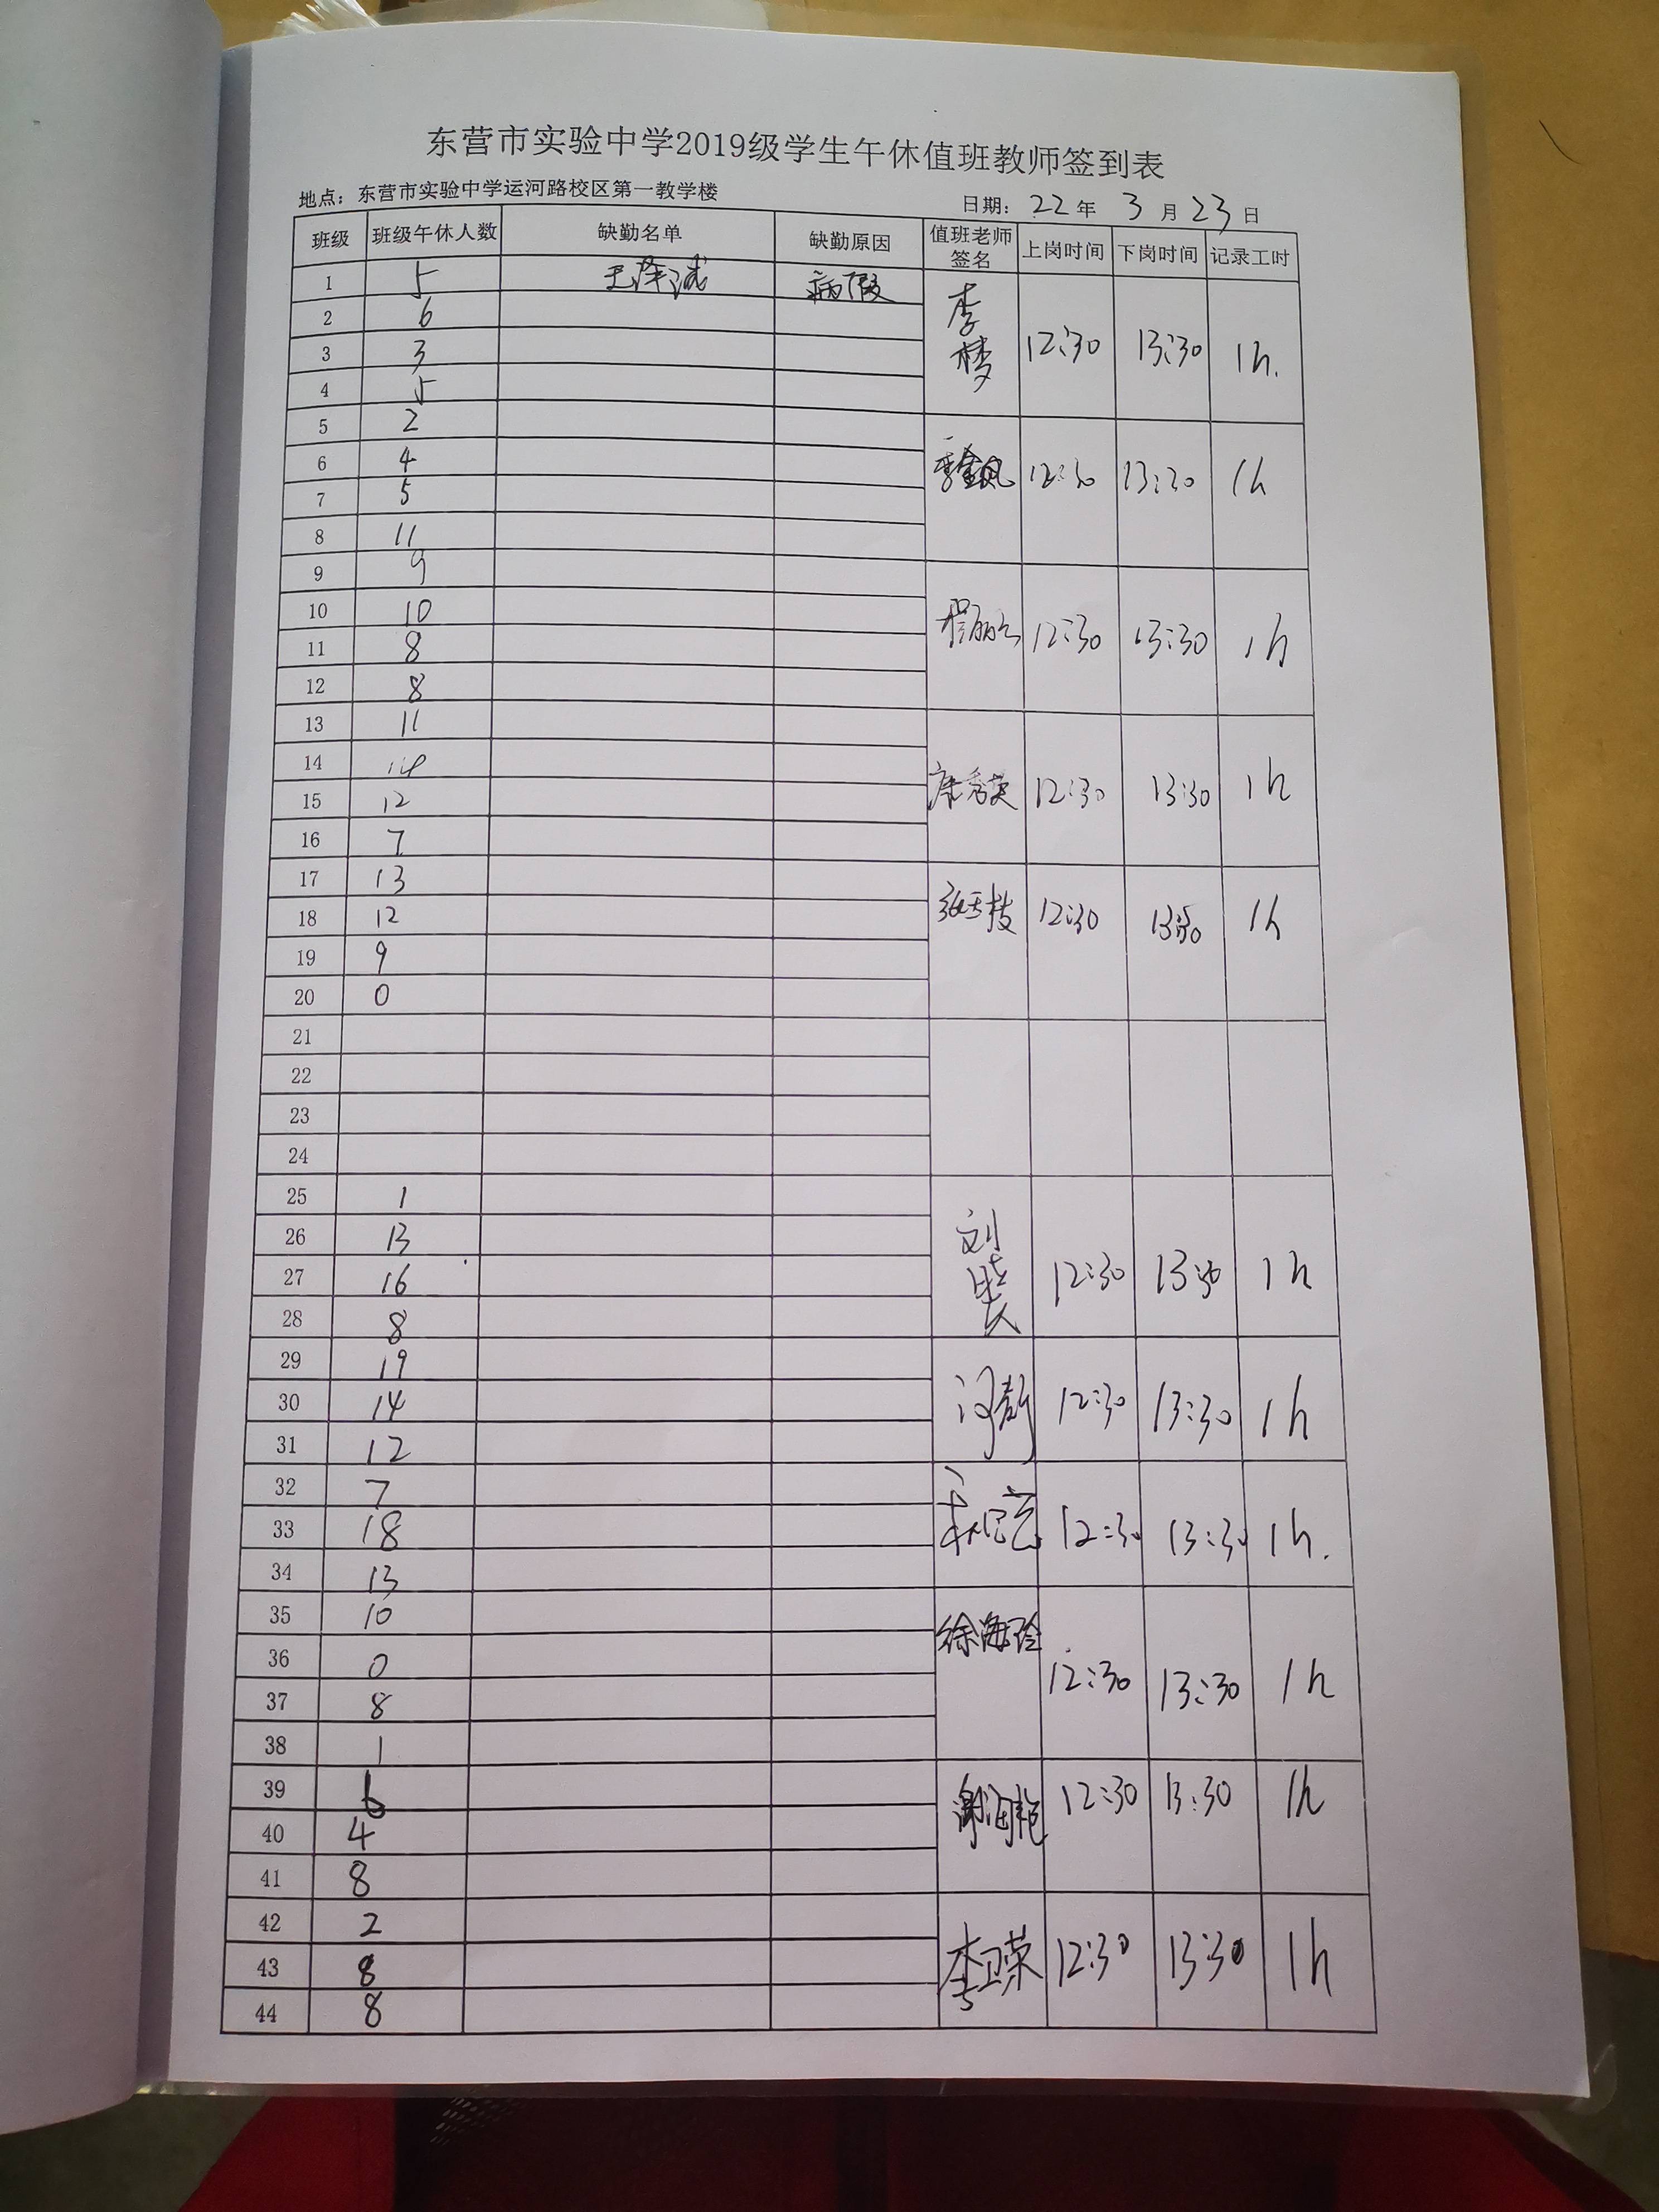 东营市实验中学2019级学生午休值班教师签到表
地点：东营市实验中学运河路校区第一教学楼 日期：22年 3月23日
班级 班级午休人数 缺勤名单 缺勤原因 值班老师签名 上岗时间 下岗时间 记录工时
1 5 王泽诚 病假 李梦 12:30 13:30 1h.
2 6
3 3
4 5
5 2
6 4 12:30 13:30 1h
7 5
8 11
9 9
10 10 12:30 13:30 1h
11 8
12 8
13 11
14 14
15 12 康秀英 12:30 13:30 1h
16 7
17 13
18 12 12:30 13:30 1h
19 9
20 0
21
22
23
24
25 1
26 13
27 16 12:30 13:30 1h
28 8
29 19
30 14 12:30 13:30 1h
31 12
32 7
33 18 12:30 13:30 1h.
34 13
35 10 徐海玲
36 0 12:30 13:30 1h
37 8
38 1
39 6 12:30 13:30 1h
40 4
41 8
42 2
43 8 李卫荣 12:30 13:30 1h
44 8